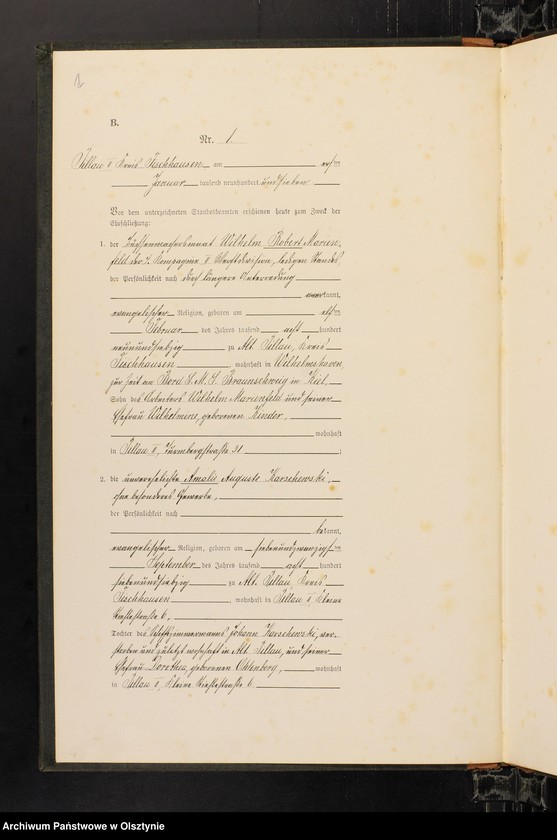 B.
Nr. 1.
Pillau II Kreis Fischhausen am ersten
Januar tausend neunhundert und sieben
Vor dem unterzeichneten Standesbeamten erschienen heute zum Zweck der
Eheschließung:
1. der Wilhelm Robert Marien-
feld der 7. Kompagnie II Werftdivision, ledigen Standes
der Persönlichkeit nach durch längere Unterredung
kannt,
evangelischer Religion, geboren am elften
Februar des Jahres tausend acht hundert
neunundsiebzig zu Alt Pillau, Kreis
Fischhausen, wohnhaft in Wilhelmshaven,
zur Zeit an Bord S. M. S. Braunschweig in Kiel,
Sohn des Arbeiters Wilhelm Marienfeld und seiner
Ehefrau Wilhelmine, geborenen Kinder,
wohnhaft
in Pillau II, Turmbergstraße 31;
2. die unverehelichte Amalie Auguste Karschewski,
ohne besonderes Gewerbe,
der Persönlichkeit nach
bekannt,
evangelischer Religion, geboren am siebenundzwanzigsten
September des Jahres tausend acht hundert
siebenundsiebzig zu Alt Pillau Kreis
Fischhausen, wohnhaft in Pillau II, Kleine
6,
Tochter des Schiffszimmermanns Johann Karschewski, ver-
storben und zuletzt wohnhaft in Alt Pillau, und seiner
Ehefrau Dorothea, geborenen Ohlenberg, wohnhaft
in Pillau II, Kleine 6.
Archiwum Państwowe w Olsztynie